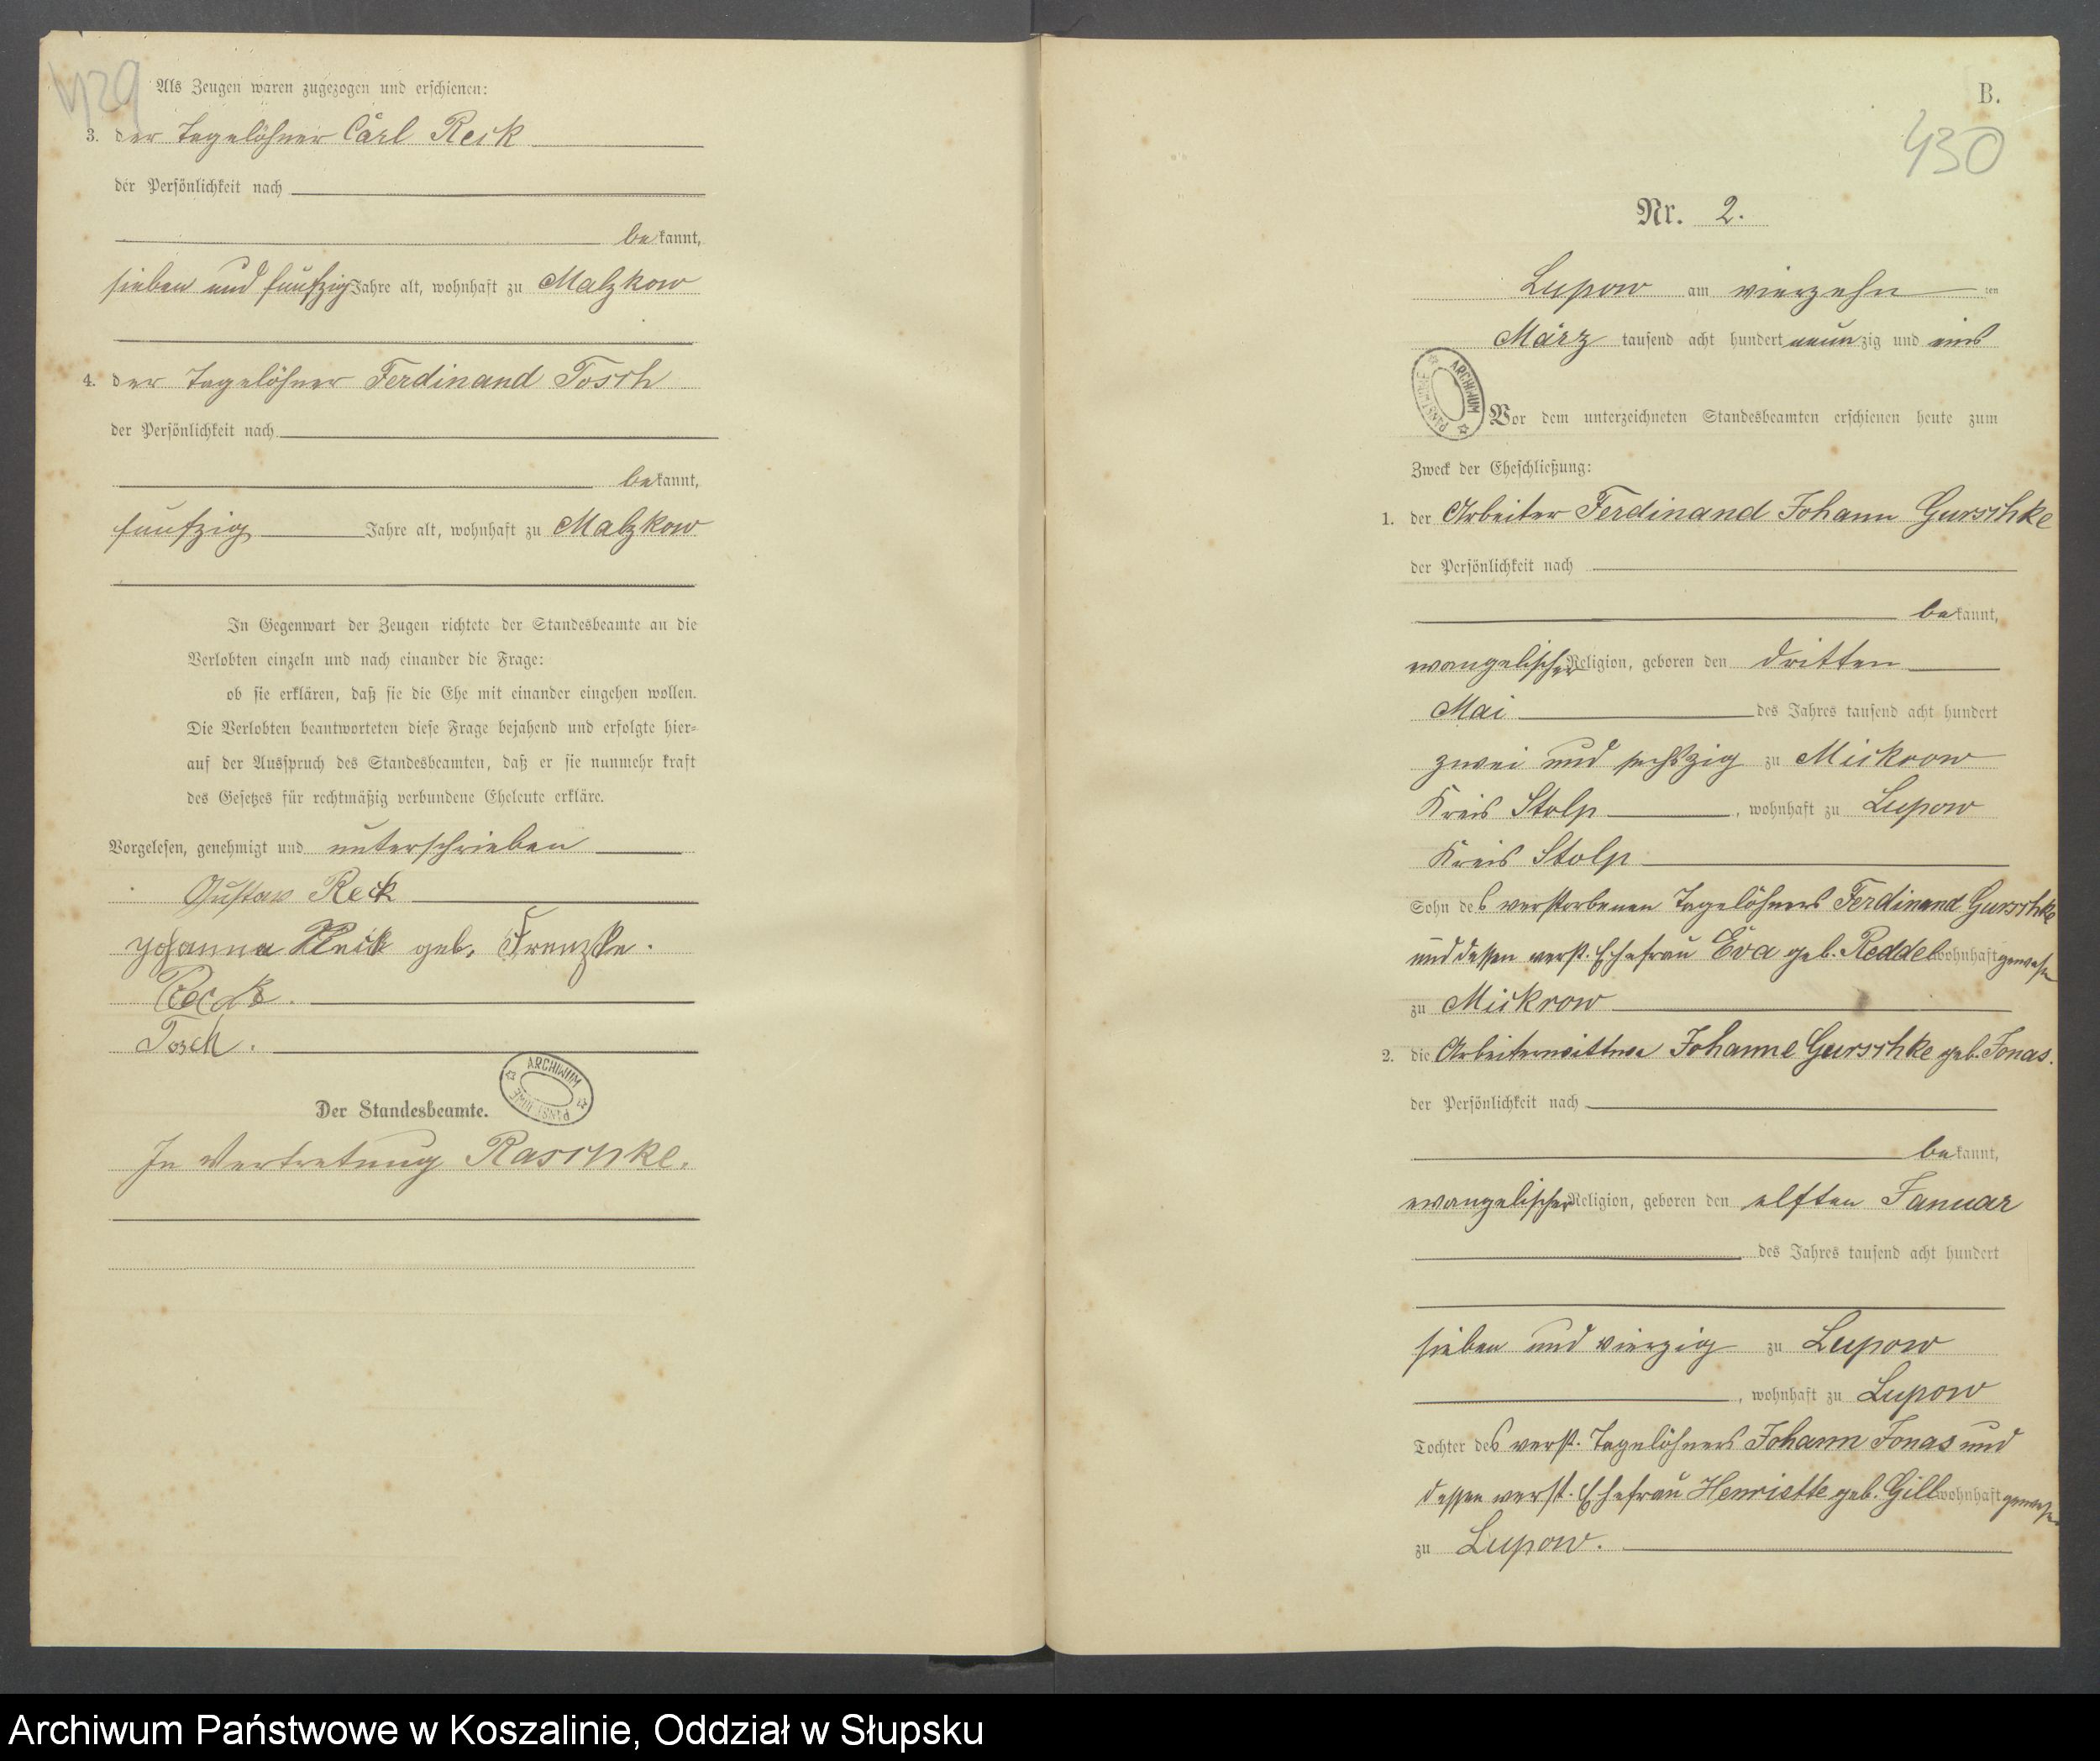 429
Als Zeugen waren zugezogen und erschienen:
3. der Tagelöhner Carl Reck
der Persönlichkeit nach
bekannt,
sieben und fünfzig Jahre alt, wohnhaft zu Malzkow
4. der Tagelöhner Ferdinand Tosch
der Persönlichkeit nach
bekannt,
fünfzig Jahre alt, wohnhaft zu Malzkow
In Gegenwart der Zeugen richtete der Standesbeamte an die
Verlobten einzeln und nach einander die Frage:
ob sie erklären, daß sie die Ehe mit einander eingehen wollen.
Die Verlobten beantworteten diese Frage bejahend und erfolgte hier-
auf der Ausspruch des Standesbeamten, daß er sie nunmehr kraft
des Gesetzes für rechtmäßig verbundene Eheleute erkläre.
Vorgelesen, genehmigt und unterschrieben
Gustav Reck
Johanna Reck geb. Frenzke.
Reck.
Tosch.
ARCHIWUM PAŃSTWOWE
Der Standesbeamte.
In Vertretung Raschke.
B.
430
Nr. 2.
Lupow am vierzehn ten
März tausend acht hundert neunzig und eins
ARCHIWUM PAŃSTWOWE
Vor dem unterzeichneten Standesbeamten erschienen heute zum
Zweck der Eheschließung:
1. der Arbeiter Ferdinand Johann Gurschke
der Persönlichkeit nach
bekannt,
evangelischer Religion, geboren den dritten
Mai des Jahres tausend acht hundert
zwei und sechszig zu Mickrow
Kreis Stolp, wohnhaft zu Lupow
Kreis Stolp
Sohn des verstorbenen Tagelöhners Ferdinand Gurschke
und dessen verst. Ehefrau Eva geb. Reddel wohnhaft gewesen
zu Mickrow
2. die Arbeiterwittwe Johanne Gurschke geb. Jonas.
der Persönlichkeit nach
bekannt,
evangelischer Religion, geboren den elften Januar
des Jahres tausend acht hundert
sieben und vierzig zu Lupow
, wohnhaft zu Lupow
Tochter des verst. Tagelöhners Johann Jonas und
dessen verst. Ehefrau Henriette geb. Gill wohnhaft gewesen
zu Lupow.
Archiwum Państwowe w Koszalinie, Oddział w Słupsku